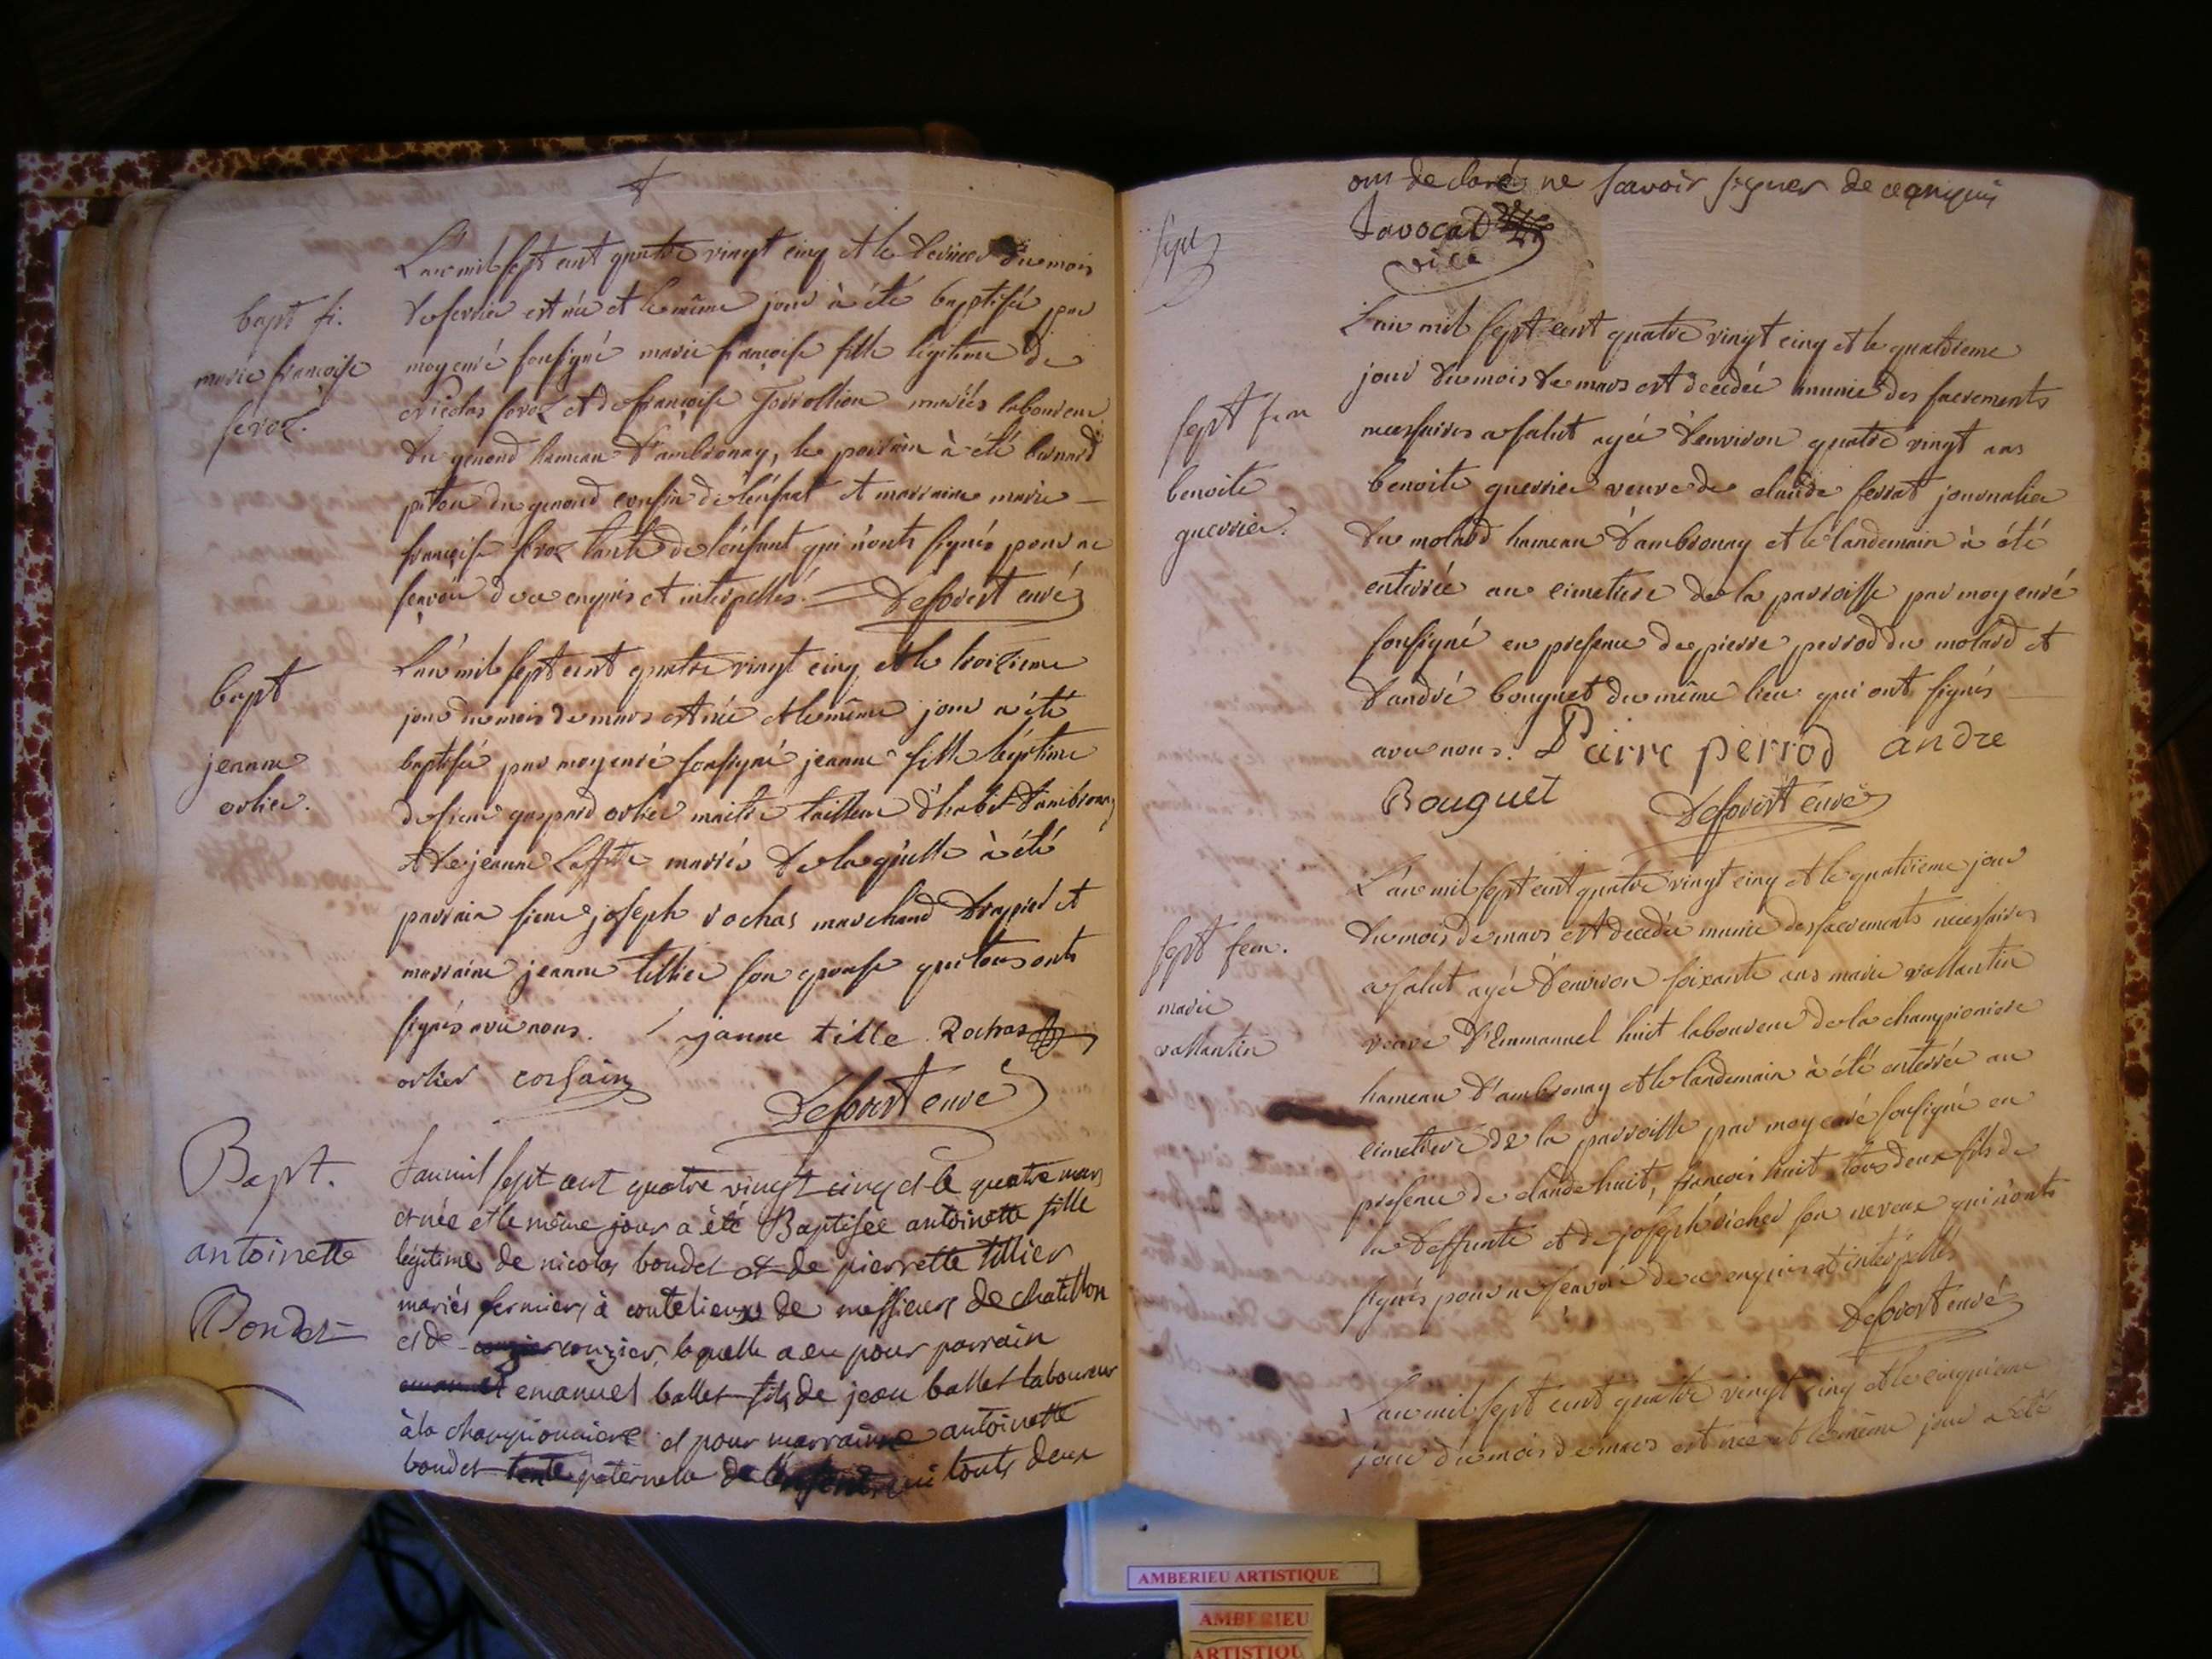 L'an mil sept cent quatre vingt cinq et le dernier du mois
bapt fi.
marie françoise
feroz.
de fevrier est née et le même jour à été baptisée par
moy curé sousigné marie françoise fille légitime de
nicolas feroz et de françoise mariés laboureur
du genoud hameau d'ambronay, le parrain à été bernard
piton du genoud cousin de l'enfant et marraine marie
françoise feroz tante de l'enfant qui n'onts signés pour ne
sçavoir de ce enquis et interpellés. Deforest curé
bapt
jeanne
orlier.
L'an mil sept cent quatre vingt cinq et le troizieme
jour du mois de mars est née et le même jour a été
baptisée par moy curé sousigné jeanne fille légitime
de sieur gaspard orlier maitre tailleur d'habit d'ambronay
et de jeanne mariés de laquelle à été
parrain sieur joseph rochas marchand drapier et
marraine jeanne tillier son epouse qui tous onts
signés avec nous. janne tille Rochas
orlier corsain
Deforest curé
Bapt.
antoinette
Boudet
L'an mil sept cent quatre vingt cinq et le quatre mars
et née et le même jour a été Baptisée antoinette fille
légitime de nicolas boudet et de pierrette tillier
mariés fermiers à coutelieux de messieurs de chatillon
et de couzier, laquelle a eu pour parrain
emanuel ballet fils de jean ballet laboureur
à la championniere et pour marraine antoinette
boudet tente paternelle de l'enfent qui touts deux
ont declaré ne sçavoir signer de ce enquis
Javocat
vic
sept fem
benoite
guerrier.
L'an mil sept cent quatre vingt cinq et le quatrieme
jour du mois de mars est decedée munie des sacrements
necessaires a salut agée d'environ quatre vingt ans
benoite guerrier veuve de claude ferrat journalier
du molard hameau d'ambronay et le landemain à été
enterrée au cimetiere de la parroisse par moy curé
sousigné en presence de pierre perrod du molard et
d'andré bouquet du même lieu qui ont signés
avec nous. Pairre perrod andre
Bouguet Deforest curé
sept fem.
marie
vallantin
L'an mil sept cent quatre vingt cinq et le quatrieme jour
du mois de mars est decedée munie des sacrements necessaires
a salut agée d'environ soixante ans marie vallantin
veuve d'Emmanuel huit laboureur de la championiere
hameau d'ambronay et le landemain à été enterrée au
cimetiere de la parroisse par moy curé sousigné en
presence de claude huit, françois huit tous deux fils de
la deffunte et de joseph richer son neveux qui n'onts
signés pour ne sçavoir de ce enquis et interpellés
Deforest curé
L'an mil sept cent quatre vingt cinq et le cinquieme
jour du mois de mars est née et le même jour a été
AMBERIEU ARTISTIQUE
AMBERIEU
ARTISTIQU